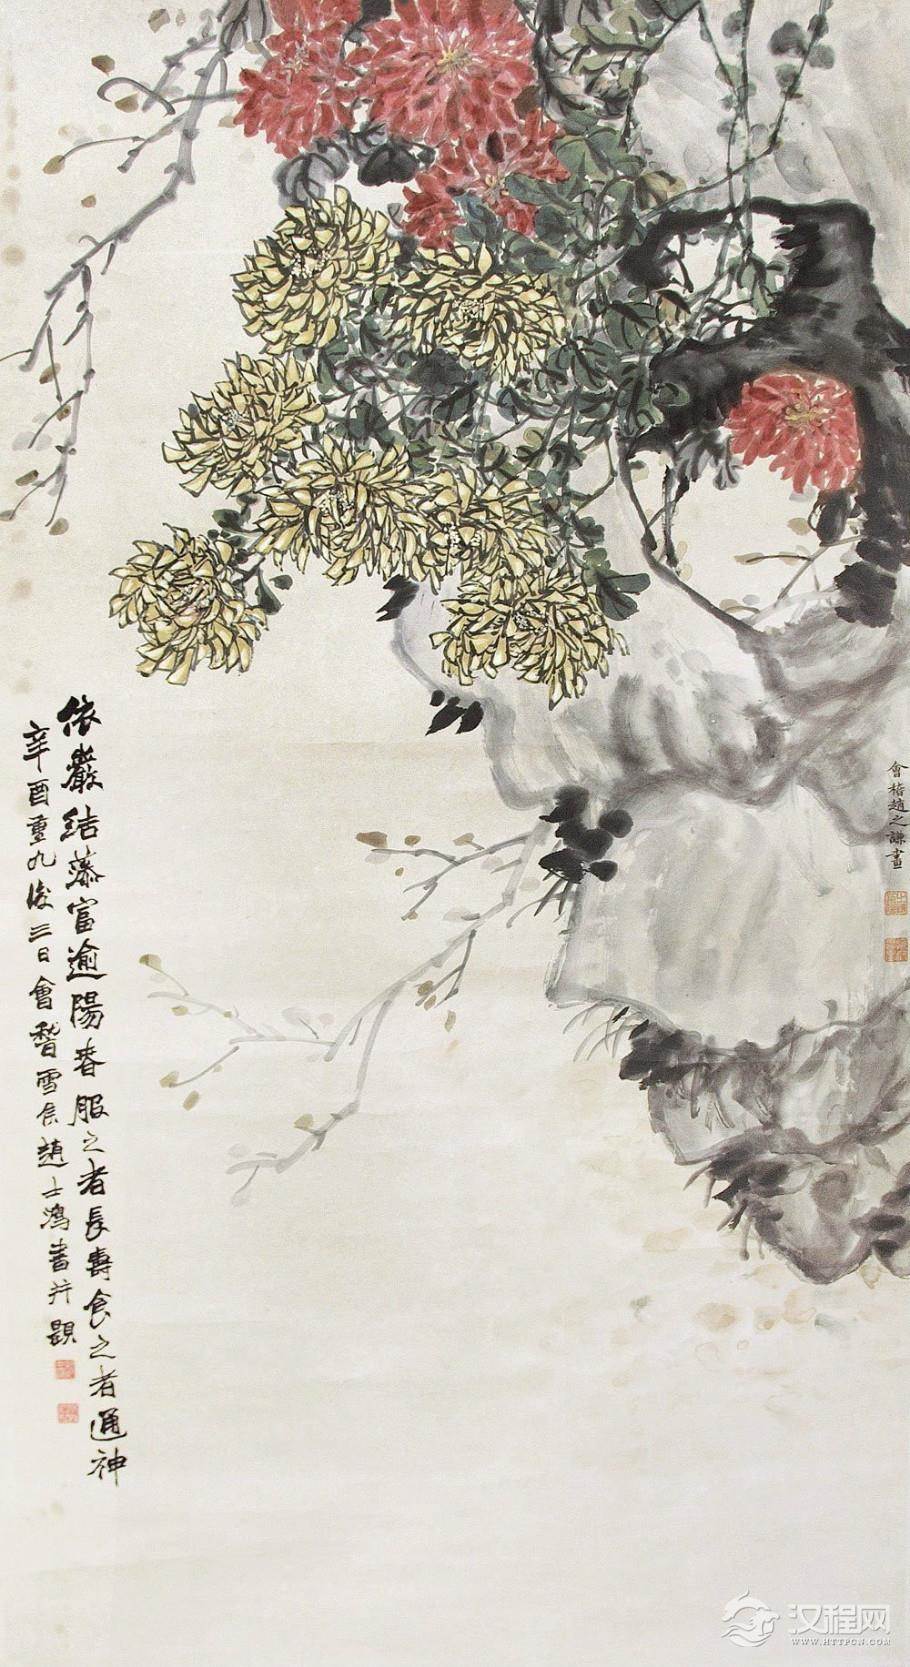 會稽趙之謙畫
依巖結藤富逾陽春服之者長壽食之者通神
辛酉重九後三日會稽雪食趙士鴻書并題
汉程网
WWW.HTTPCN.COM